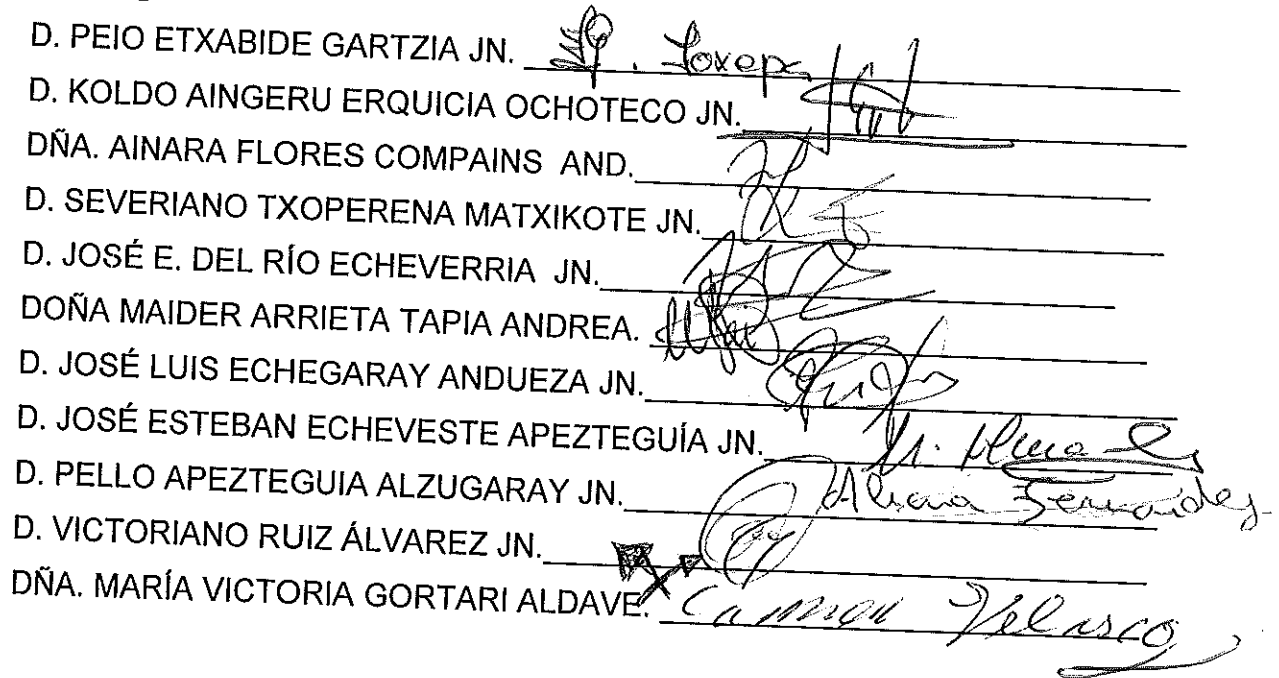 D. PEIO ETXABIDE GARTZIA JN.
D. KOLDO AINGERU ERQUICIA OCHOTECO JN.
DÑA. AINARA FLORES COMPAINS AND.
D. SEVERIANO TXOPERENA MATXIKOTE JN.
D. JOSÉ E. DEL RÍO ECHEVERRIA JN.
DOÑA MAIDER ARRIETA TAPIA ANDREA.
D. JOSÉ LUIS ECHEGARAY ANDUEZA JN.
D. JOSÉ ESTEBAN ECHEVESTE APEZTEGUÍA JN.
D. PELLO APEZTEGUIA ALZUGARAY JN. Fernandez
D. VICTORIANO RUIZ ÁLVAREZ JN.
DÑA. MARÍA VICTORIA GORTARI ALDAVE. Carmen Velasco